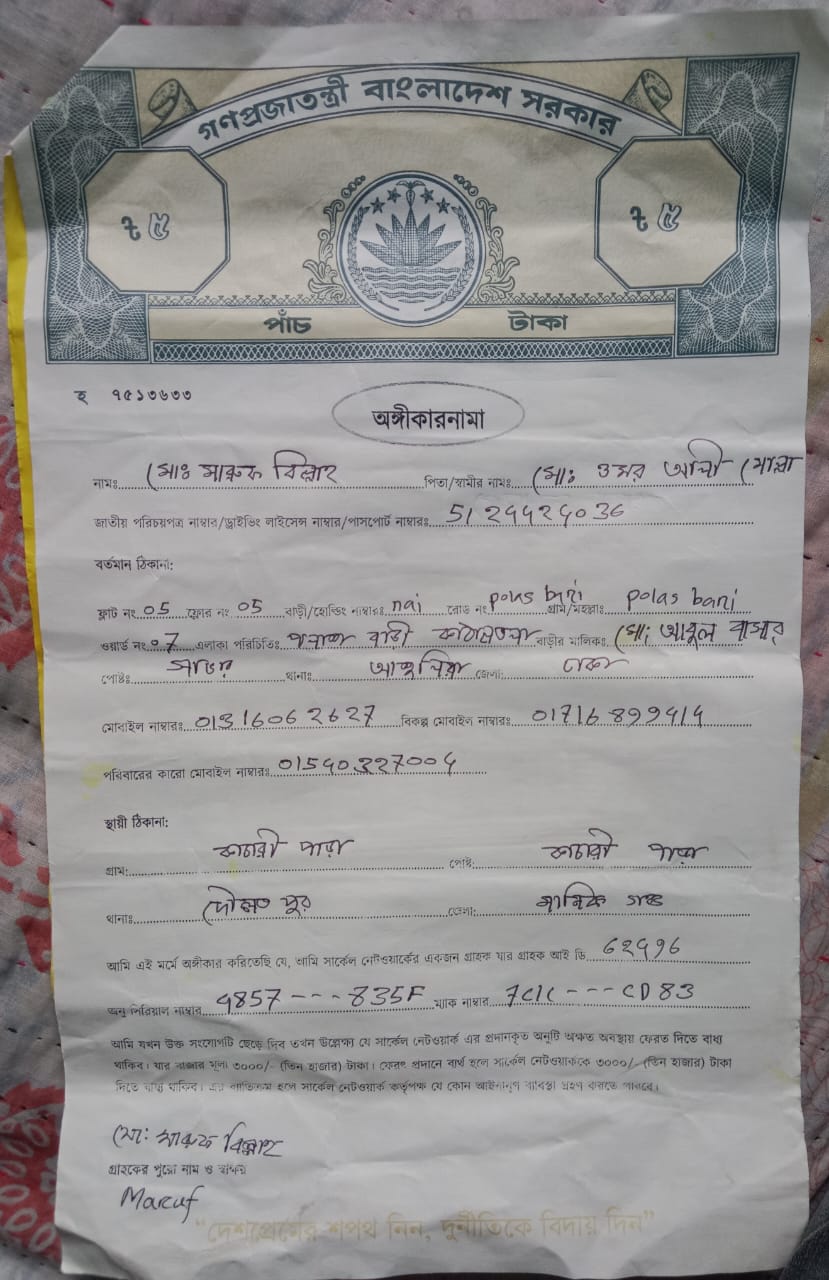 গণপ্রজাতন্ত্রী বাংলাদেশ সরকার
৳ ৫ ৳ ৫
পাঁচ টাকা
হ ৭৫১৩৬৩৩
অঙ্গীকারনামা
নামঃ মোঃ মারুফ বিল্লাহ পিতা/স্বামীর নামঃ মোঃ ওমর আলী মোল্লা
জাতীয় পরিচয়পত্র নাম্বার/ড্রাইভিং লাইসেন্স নাম্বার/পাসপোর্ট নাম্বারঃ
বর্তমান ঠিকানা:
ফ্লাট নং 05 ফ্লোর নং 05 বাড়ী/হোল্ডিং নাম্বারঃ nai রোড নং polas bari গ্রাম/মহল্লাঃ polas bari
ওয়ার্ড নং 07 এলাকা পরিচিতিঃ পলাশ বাড়ী বাড়ীর মালিকঃ মোঃ আবুল বাসার
পোষ্টঃ সাভার থানাঃ আশুলিয়া জেলা: ঢাকা
মোবাইল নাম্বারঃ 01316062627 বিকল্প মোবাইল নাম্বারঃ
পরিবারের কারো মোবাইল নাম্বারঃ
স্থায়ী ঠিকানা:
গ্রাম: কাচারী পাড়া পোষ্ট: কাচারী পাড়া
থানাঃ দৌলত পুর জেলা: মানিক গঞ্জ
আমি এই মর্মে অঙ্গীকার করিতেছি যে, আমি সার্কেল নেটওয়ার্কের একজন গ্রাহক যার গ্রাহক আই ডি
অনু সিরিয়াল নাম্বার ম্যাক নাম্বার 7C1C --- CD83
আমি যখন উক্ত সংযোগটি ছেড়ে দিব তখন উল্লেক্ষ্য যে সার্কেল নেটওয়ার্ক এর প্রদানকৃত অনুটি অক্ষত অবস্থায় ফেরত দিতে বাধ্য
থাকিব। যার বাজার মূল্য ৩০০০/- (তিন হাজার) টাকা। ফেরৎ প্রদানে ব্যর্থ হলে সার্কেল নেটওয়ার্ককে ৩০০০/- (তিন হাজার) টাকা
দিতে বাধ্য থাকিব। এর ব্যতিক্রম হলে সার্কেল নেটওয়ার্ক কর্তৃপক্ষ যে কোন আইনানুগ ব্যাবস্থা গ্রহণ করতে পারবে।
মো: মারুফ বিল্লাহ
গ্রাহকের পুরো নাম ও স্বাক্ষর
Maruf
"দেশপ্রেমের শপথ নিন, দুর্নীতিকে বিদায় দিন"